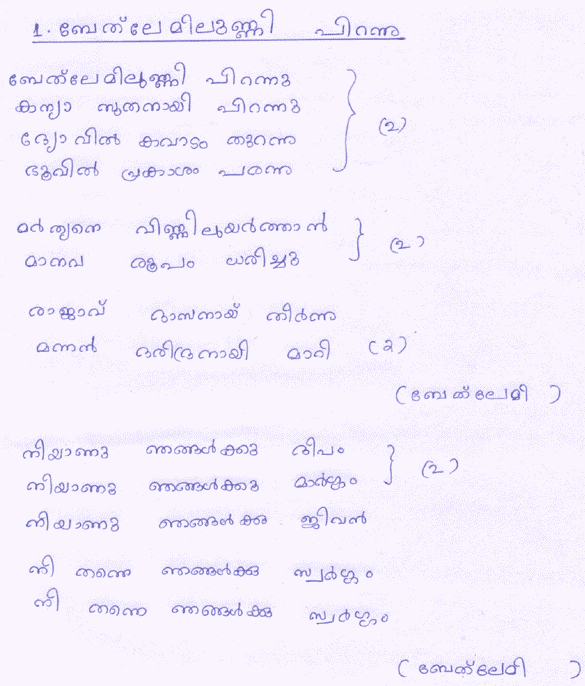 1. ബേത്ലേമിലുണ്ണി പിറന്നു
ബേത്ലേമിലുണ്ണി പിറന്നു
കന്യാ സുതനായി പിറന്നു
ദ്യോവിൽ കവാടം തുറന്നു (2)
ഭൂവിൽ പ്രകാശം പരന്നു
മർത്യനെ വിണ്ണിലുയർത്താൻ
മാനവ രൂപം ധരിച്ചു (2)
രാജാവ് ദാസനായ് തീർന്നു
മന്നൻ ദരിദ്രനായി മാറി (2)
(ബേത്ലേമി )
നീയാണു ഞങ്ങൾക്കു ദീപം
നീയാണു ഞങ്ങൾക്കു മാർഗ്ഗം (2)
നീയാണു ഞങ്ങൾക്കു ജീവൻ
നീ തന്നെ ഞങ്ങൾക്കു സ്വർഗ്ഗം
നീ തന്നെ ഞങ്ങൾക്കു സ്വർഗ്ഗം
(ബേത്ലേമി )